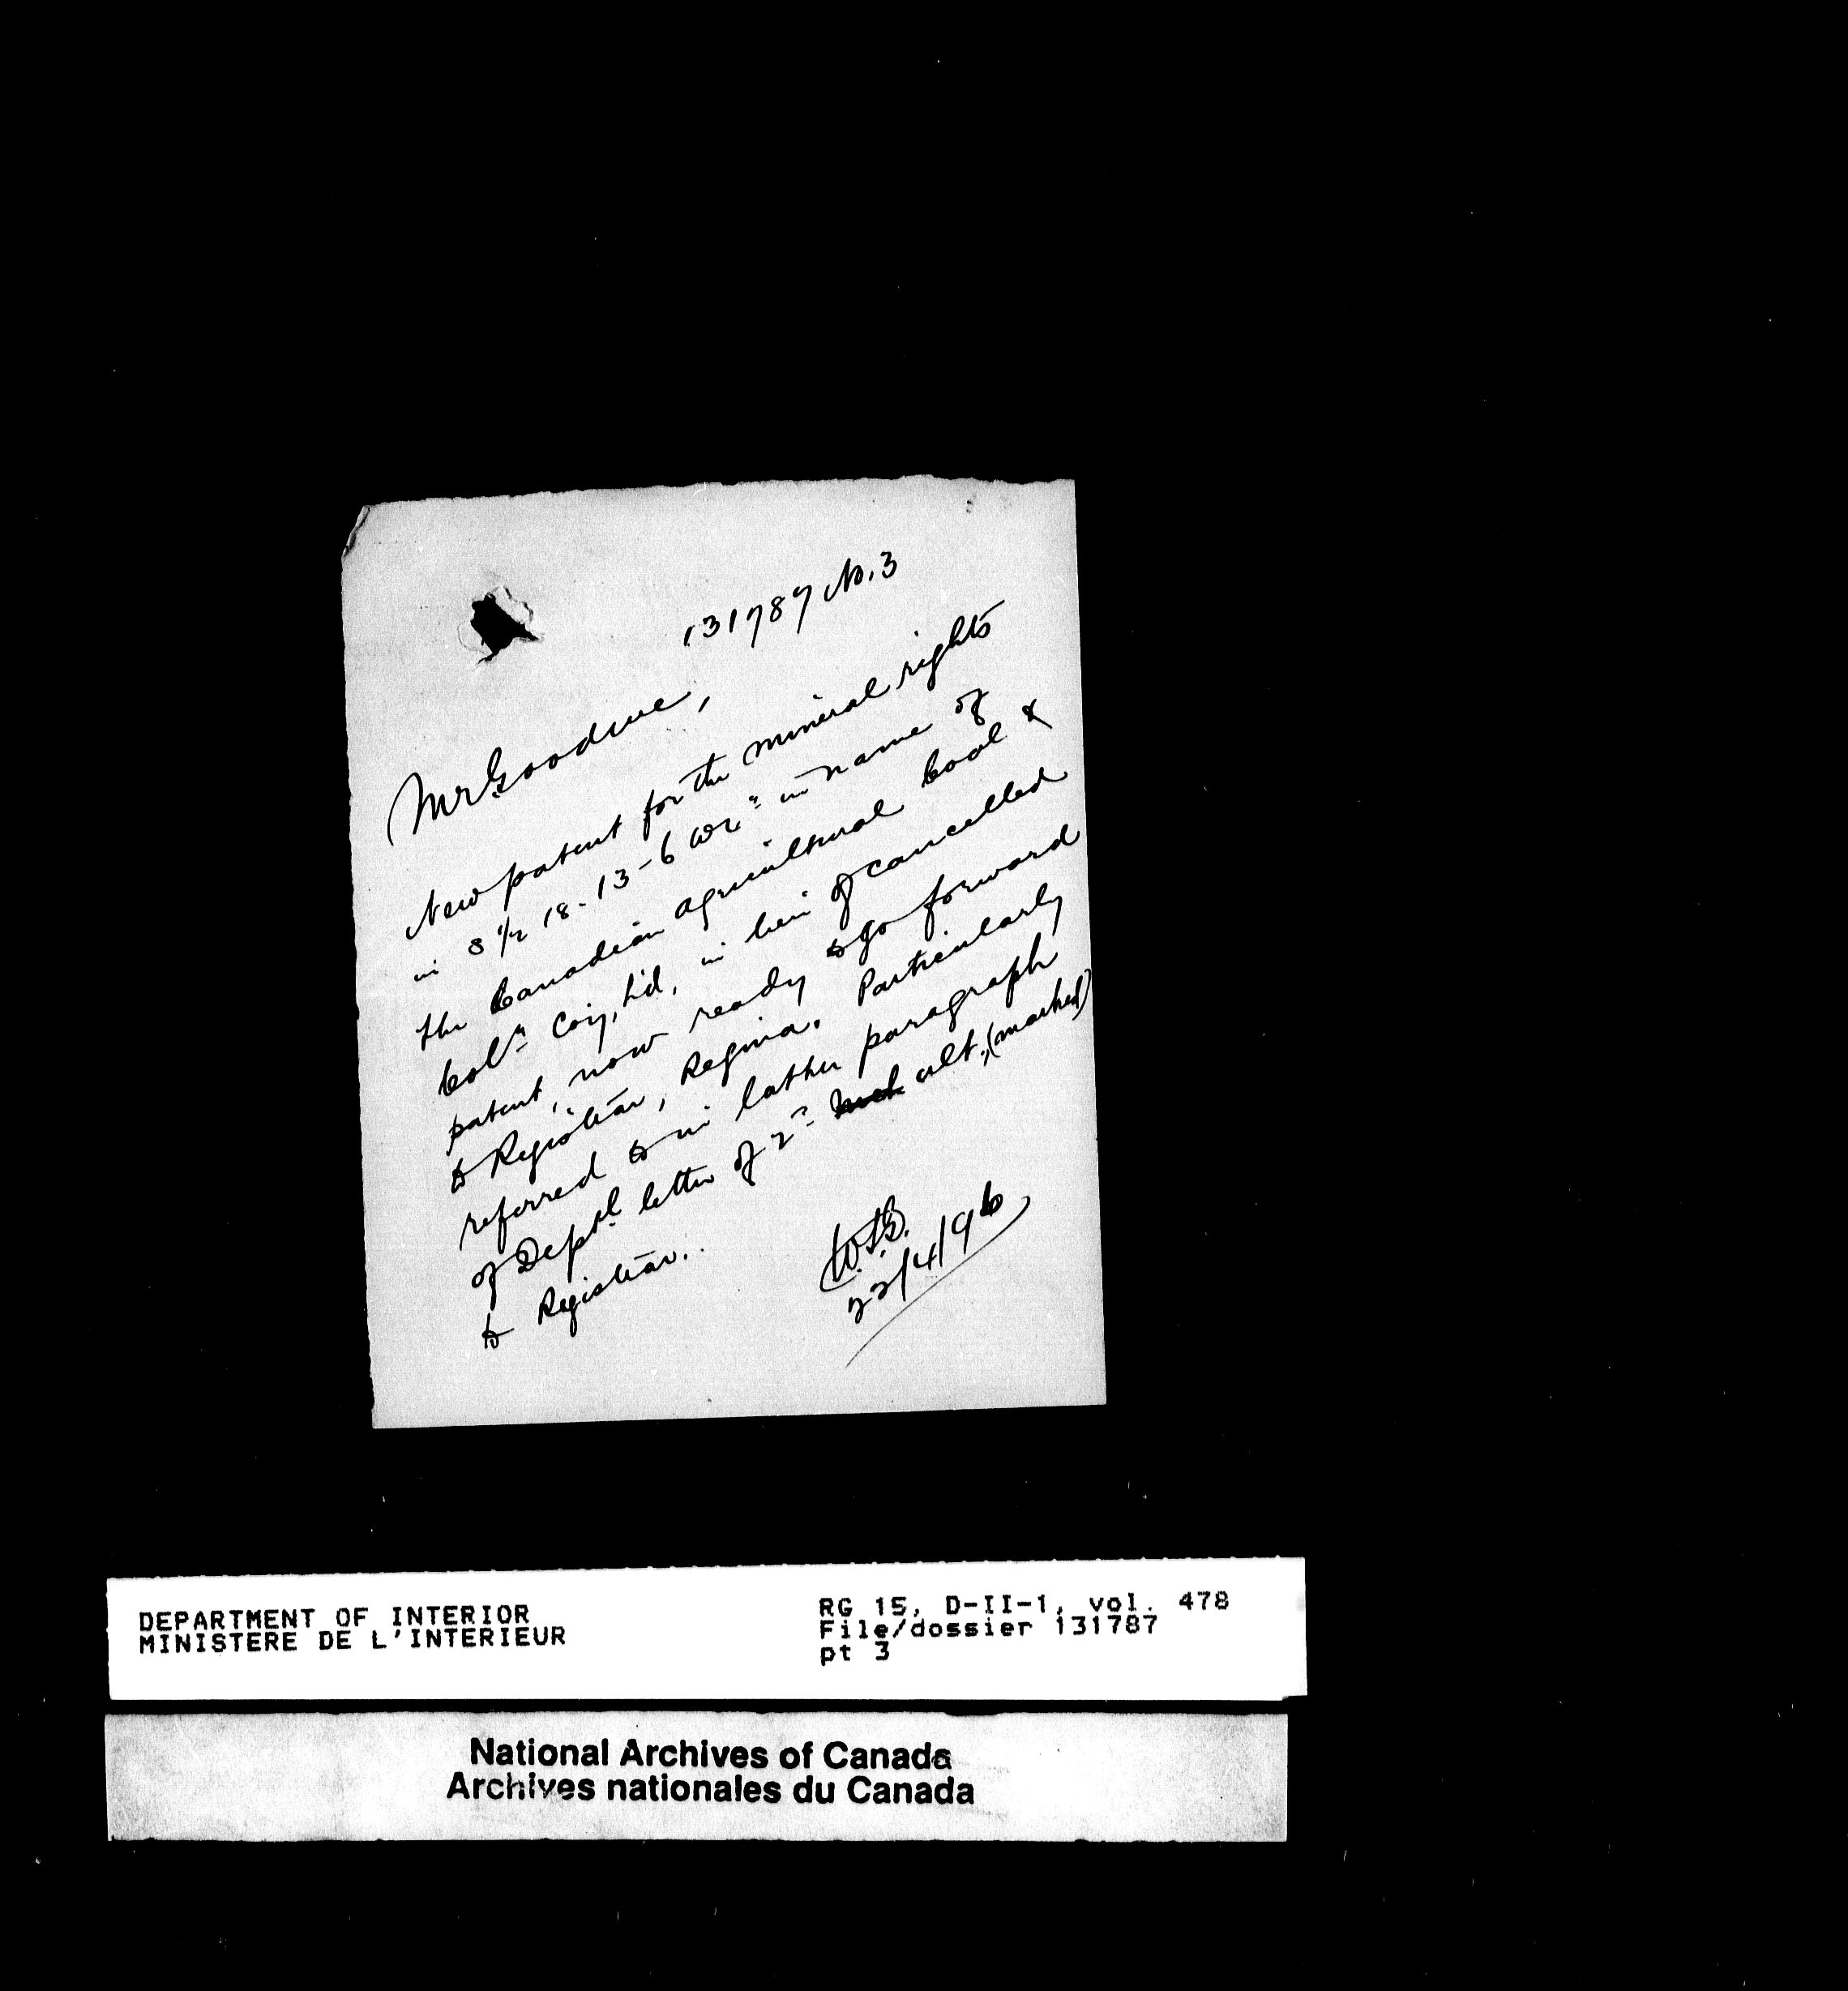 131787 No. 3
Mr Goodeve,
New patent for the mineral rights
in S 1/2 18-13-6 W2" in name of
the Canadian Agricultural Coal &
Col'n Coy, L'd, in lieu of cancelled
patent, now ready to go forward
to Registrar, Regina. Particularly
referred to in latter paragraph
of Dept'l letter of 2" ult., (marked)
to Registrar.
22/4/96
DEPARTMENT OF INTERIOR
MINISTERE DE L'INTERIEUR
RG 15, D-II-1, vol. 478
File/dossier 131787
pt 3
National Archives of Canada
Archives nationales du Canada